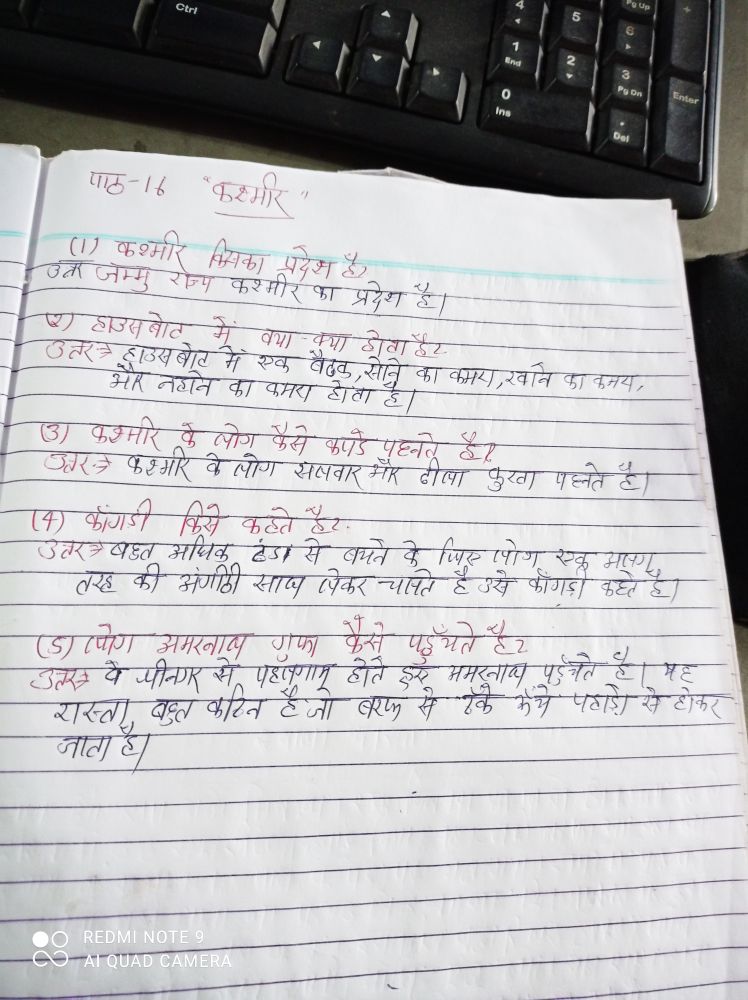 Ctrl
4
5
6
Pg Up
+
1
End
2
3
Pg Dn
Enter
0
Ins
.
Del
पाठ-16 "कश्मीर"
(1) कश्मीर किसका प्रदेश है?
उतर जम्मु राज्य कश्मीर का प्रदेश है।
(2) हाउसबोट में क्या-क्या होता है?
उतर→ हाउसबोट में एक बैठक, सोने का कमरा, खाने का कमरा,
और नहाने का कमरा होता है।
(3) कश्मीर के लोग कैसे कपडे पहनते है?
उतर→ कश्मीर के लोग सलवार और ढीला कुरता पहनते है।
(4) काँगडी किसे कहते है?
उतर→ बहुत अधिक ठंडा से बचने के लिए लोग एक अलग
तरह की अंगीठी साथ लेकर चलते है उसे काँगड़ी कहते है।
(5) लोग अमरनाथ गुफा कैसे पहुँचते है?
उतर→ वे श्रीनगर से पहलगाम होते हुए अमरनाथ पहुँचते है। यह
रास्ता बहुत कठिन है जो बरफ से ढँके ऊँचे पहाड़ो से होकर
जाता है।
REDMI NOTE 9
AI QUAD CAMERA